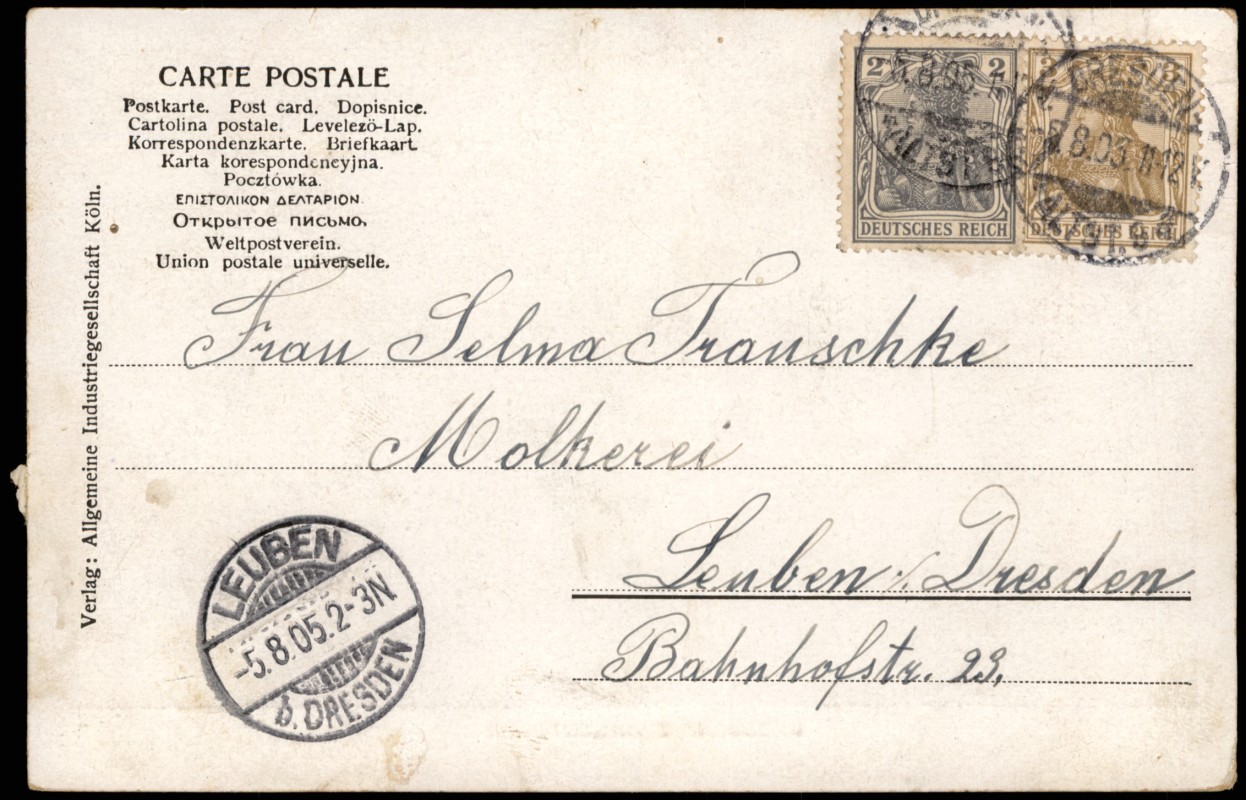 CARTE POSTALE
Postkarte. Post card. Dopisnice.
Cartolina postale. Levelezö-Lap.
Korrespondenzkarte. Briefkaart
Karta korespondencyjna.
Pocztówka.
ΕΠΙΣΤΟΛΙΚΟΝ ΔΕΛΤΑΡΙΟΝ
Открытое письмо.
Weltpostverein.
Union postale universelle.
Verlag: Allgemeine Industriegesellschaft Köln.
2 2
DEUTSCHES REICH
3 3
DEUTSCHES REICH
DRESDEN
8.05. 11-12 V
ALTST.
Frau Selma Trauschke
Molkerei
Leuben / Dresden
Bahnhofstr. 23.
LEUBEN
-5.8.05.2-3N
b. DRESDEN